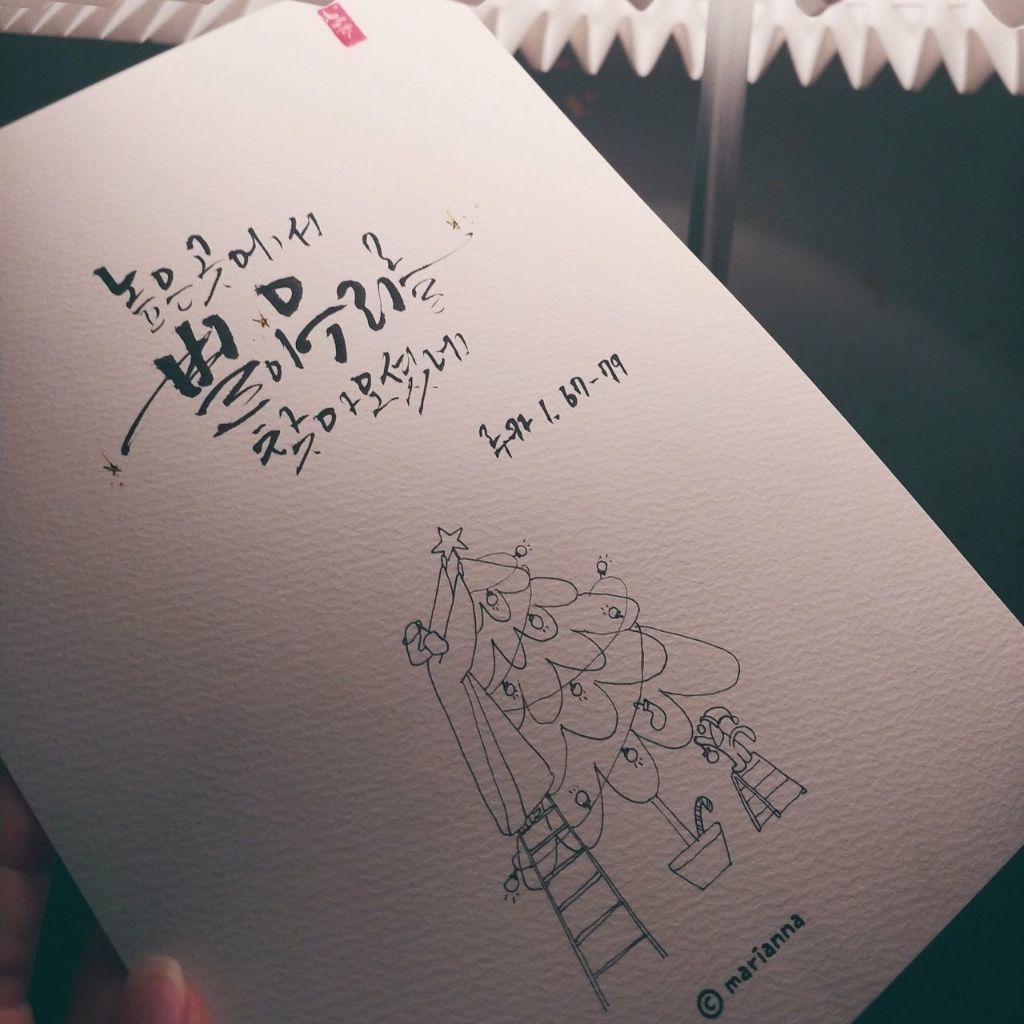 높은곳에서
별이 우리를
찾아오셨네!
루카 1. 67-79
© marianna